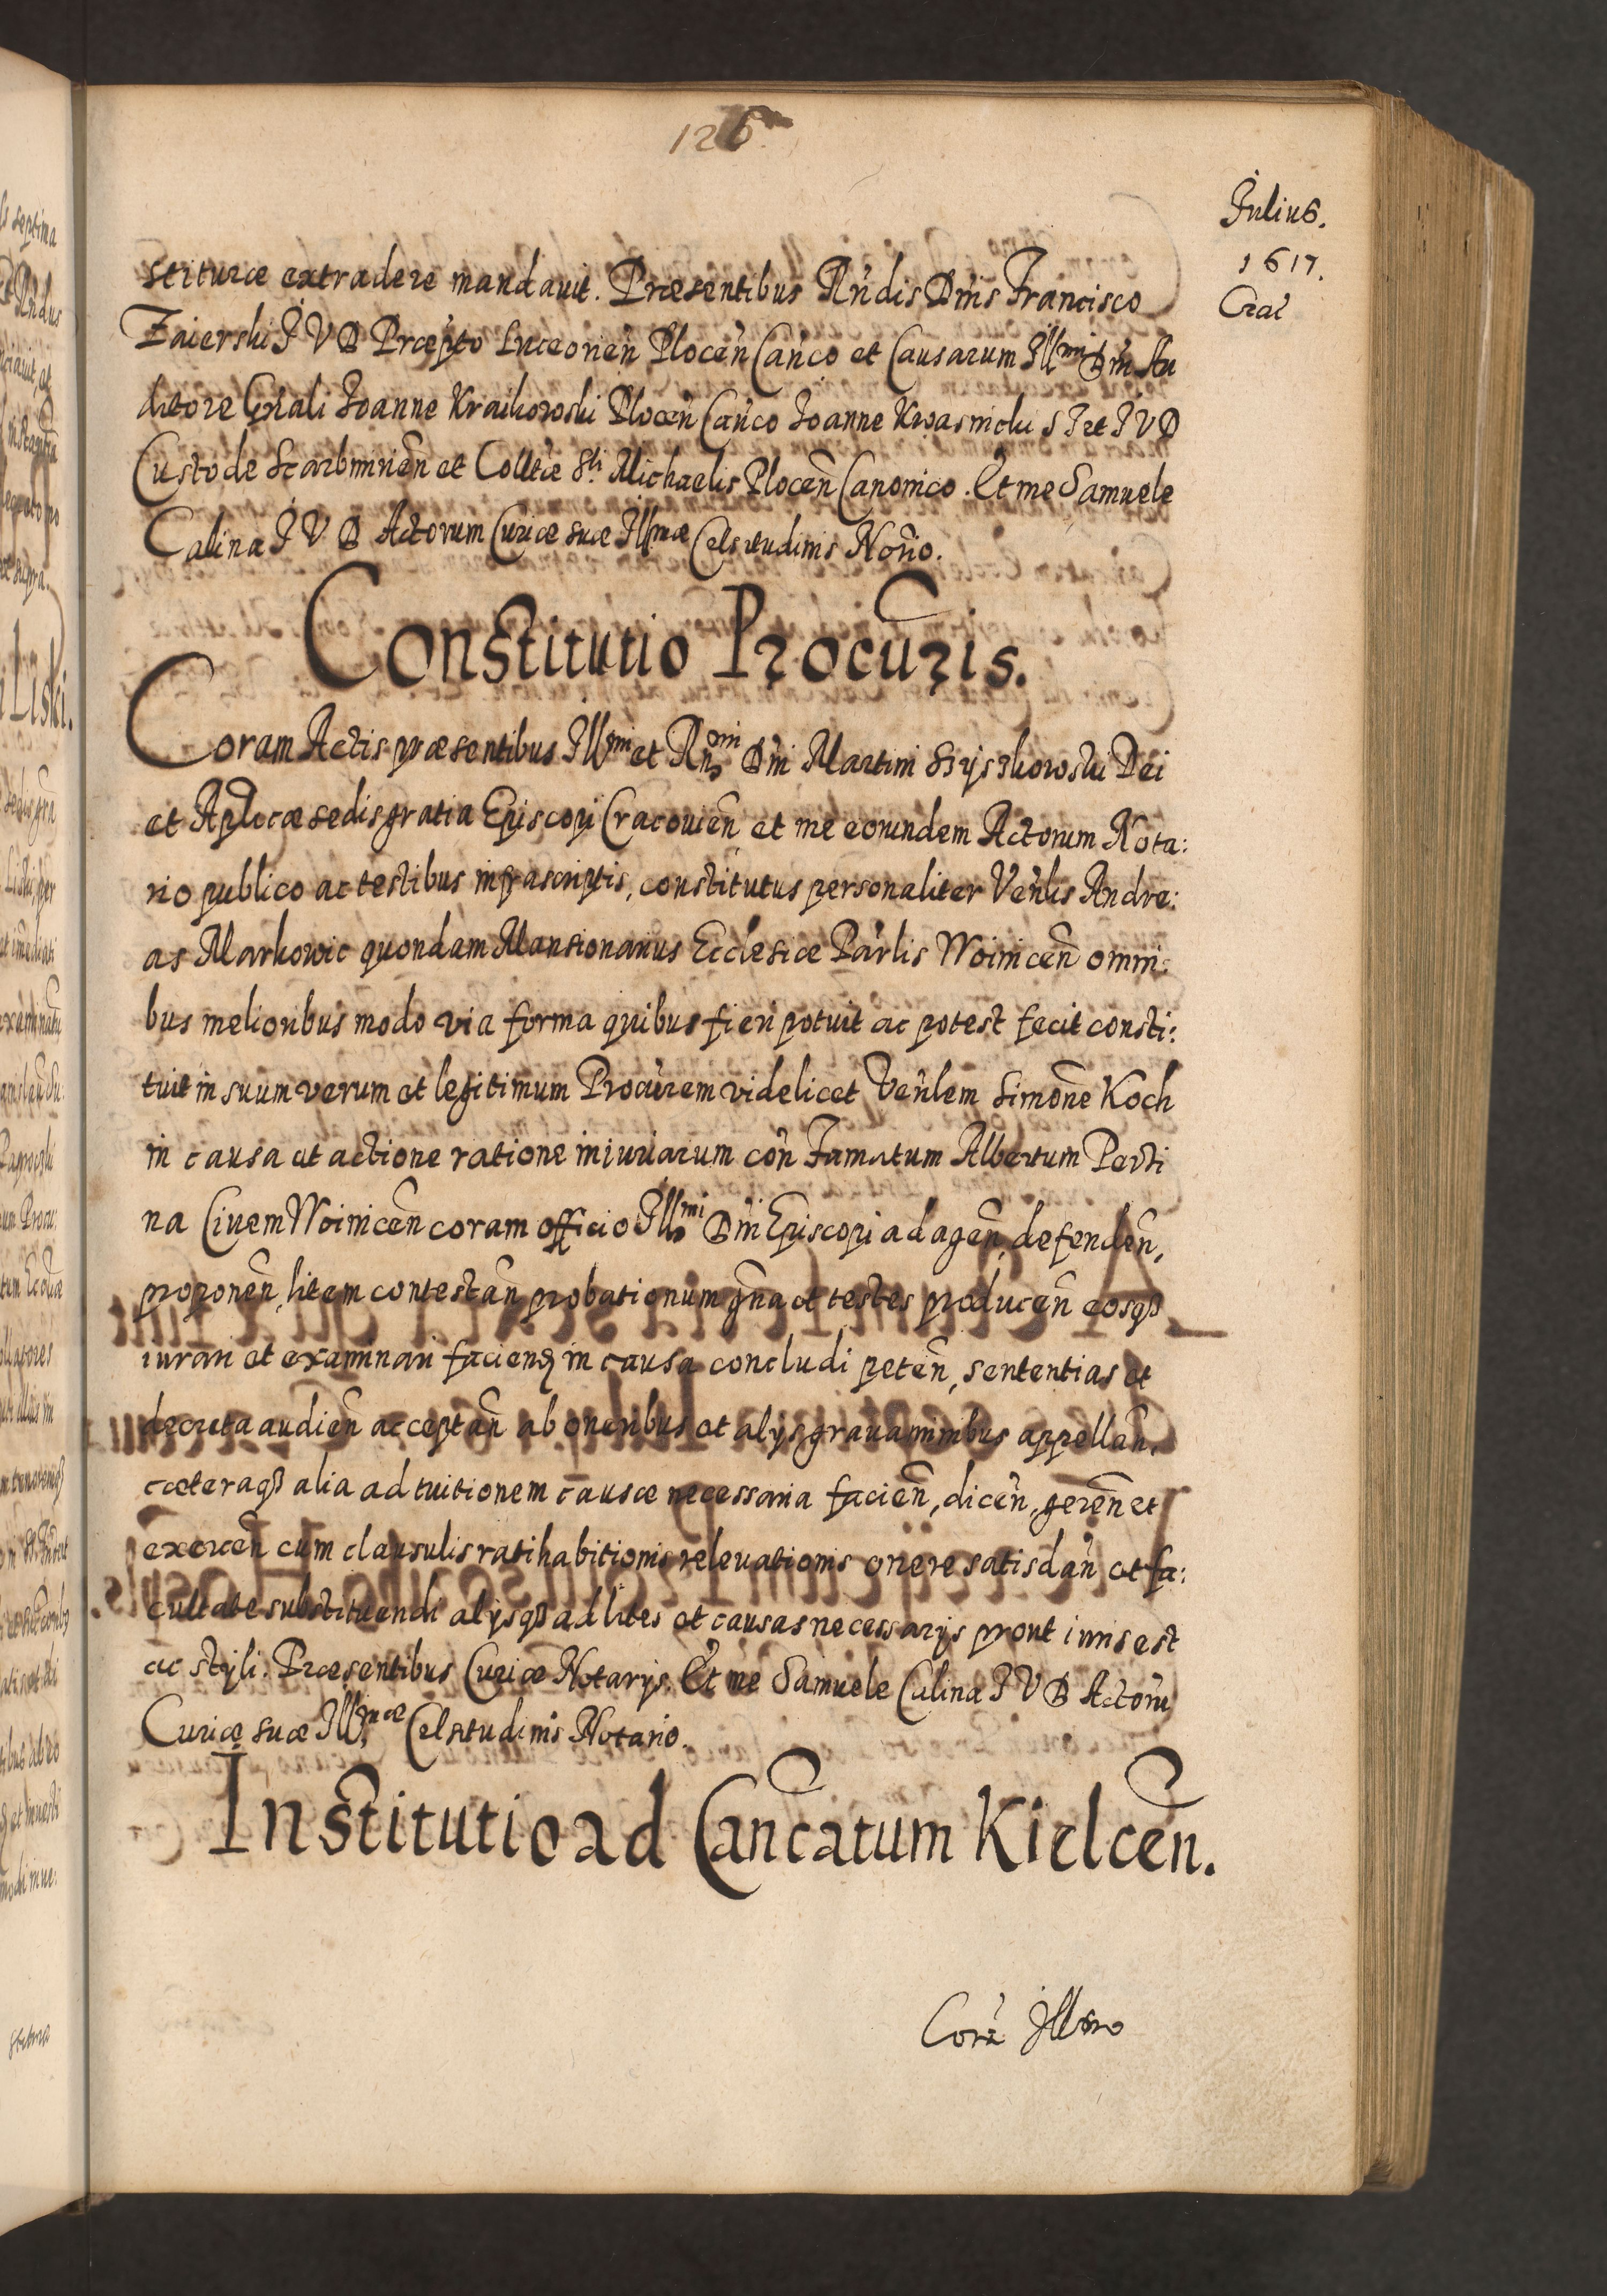 126.
Julius.
1617.
Crac̃
stituræ extradere mandauit. Præsentibus Rñdis Dñis Francisco
Zaierski J V D Præpto Luceorieñ Ploceñ Cañco et Causarum Illmi Dñi Au
ditore Gñali Joanne Kraikowski Ploceñ Cañco Joanne Kwasnicki S T et J V D
Custode Scarbmirieñ et Colltæ Sti Michaelis Ploceñ Canonico. Et me Samuele
Calina J V D Actorum Curiæ suæ Illmæ Celsitudinis Norĩo.
Constitutio Procuris.
Coram Actis præsentibus Illmi et Rñdmi Dñi Martini Szyszkowski Dei
et Aplicæ sedis gratia Episcopi Cracouieñ et me eorundem Actorum Nota:
rio publico ac testibus infrascriptis, constitutus personaliter Veñlis Andre:
as Markowic quondam Mansionarius Ecclesiæ Parlis Woiniceñ omni:
bus melioribus modo via forma quibus fieri potuit ac potest fecit consti:
tuit in suum verum et legitimum Procurem videlicet Veñlem Simonẽ Koch
in causa et actione ratione iniuriarum coñ Famatum Albertum Perti
na Ciuem Woiniceñ coram officio Illmi Dñi Episcopi ad ageñ, defendeñ,
proponeñ, litem contestañ probationum gña et testes produceñ eosqȝ
iurari et examinari facienđ in causa concludi peteñ, sententias et
decreta audieñ acceptañ ab oneribus et alijs grauaminibus appellañ,
cæteraqȝ alia ad tuitionem causæ necessaria facieñ, diceñ, gereñ et
exerceñ cum clausulis ratihabitionis releuationis onere satisdañ et fa:
cultate substituendi alijsqȝ ad lites et causas necessarijs prout iuris est
ac styli. Præsentibus Curiæ Notarijs. Et me Samuele Calina J V D Actorũ
Curiæ suæ Illmæ Celsitudinis Notario.
Institutio ad Cañcatum Kielceñ.
Corã Illmo